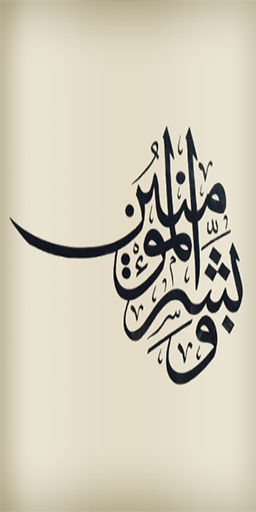 وَبَشِّرِ الْمُؤْمِنِينَ